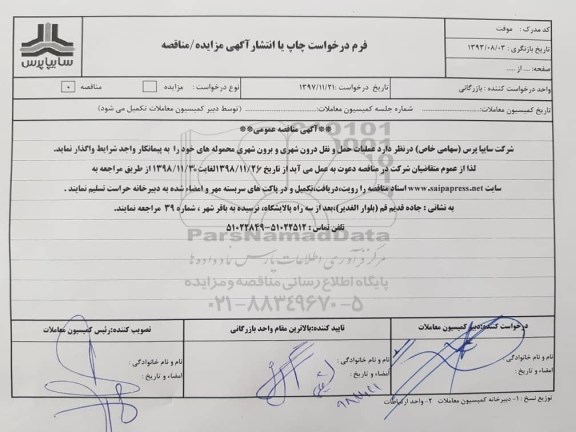 سایپا پرس
فرم درخواست چاپ یا انتشار آگهی مزایده/مناقصه
کد مدرک : موقت
تاریخ بازنگری : ۱۳۹۳/۰۸/۰۳
صفحه: ... از ...
واحد درخواست کننده : بازرگانی
تاریخ درخواست :۱۳۹۷/۱۱/۲۱
نوع درخواست : مزایده مناقصه
تاریخ کمیسیون معاملات: شماره جلسه کمیسیون معاملات: (توسط دبیر کمیسیون معاملات تکمیل می شود)
**آگهی مناقصه عمومی**
شرکت سایپا پرس (سهامی خاص) درنظر دارد عملیات حمل و نقل درون شهری و برون شهری محموله های خود را به پیمانکار واجد شرایط واگذار نماید.
لذا از عموم متقاضیان شرکت در مناقصه دعوت به عمل می آید از تاریخ ۱۳۹۸/۱۱/۲۶لغایت۱۳۹۸/۱۱/۳۰ از طریق مراجعه به
سایت www.saipapress.net اسناد مناقصه را رویت،دریافت،تکمیل و در پاکت های سربسته مهر و امضاء شده به دبیرخانه حراست تسلیم نمایند .
به نشانی : جاده قدیم قم (بلوار الغدیر)،بعد از سه راه پالایشگاه، نرسیده به باقر شهر ، شماره ۳۹ مراجعه نمایند.
تلفن تماس : ۵۱۰۲۲۵۱۲-۵۱۰۲۲۸۴۹
ParsNamadData
مرکز فرآوری اطلاعات پارس نماد داده ها
پایگاه اطلاع رسانی مناقصه و مزایده
۰۲۱-۸۸۳۴۹۶۷۰-۵
درخواست کننده:دبیر کمیسیون معاملات
تایید کننده:بالاترین مقام واحد بازرگانی
تصویب کننده:رئیس کمیسیون معاملات
نام و نام خانوادگی : نام و نام خانوادگی : نام و نام خانوادگی :
امضاء و تاریخ : امضاء و تاریخ : امضاء و تاریخ :
توزیع نسخ : ۱- دبیرخانه کمیسیون معاملات ۲- واحد ارتباطات